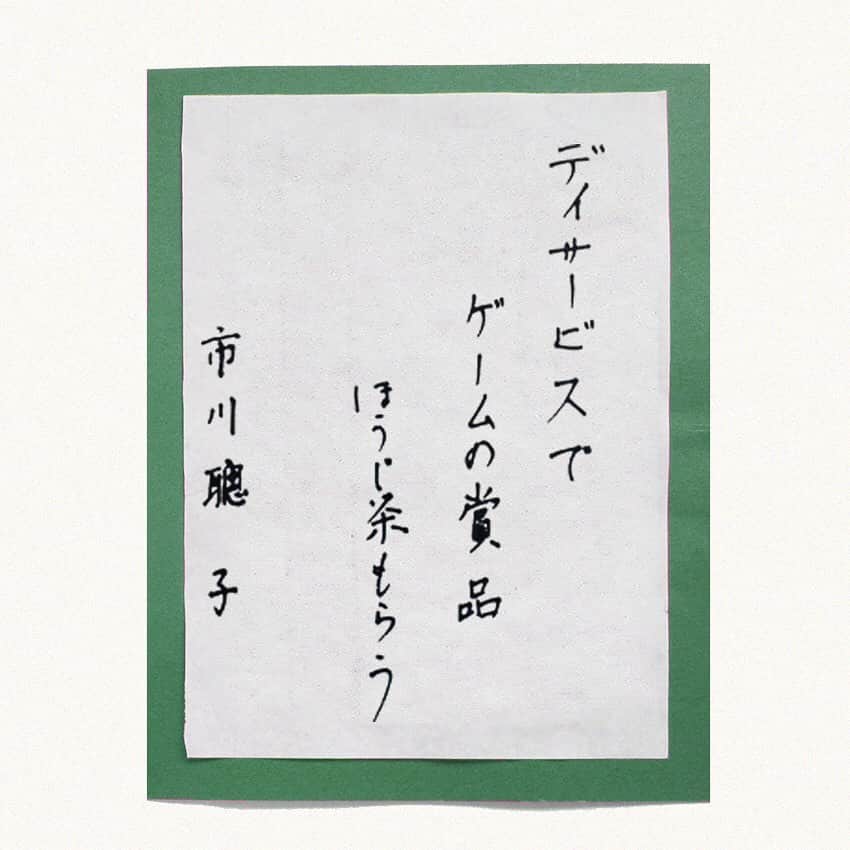 デイサービスで
ゲームの賞品
ほうじ茶もらう
市川聰子